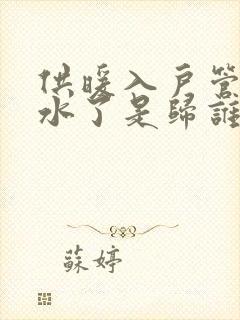 供暖入戶管
水了是歸誰
蘇婷